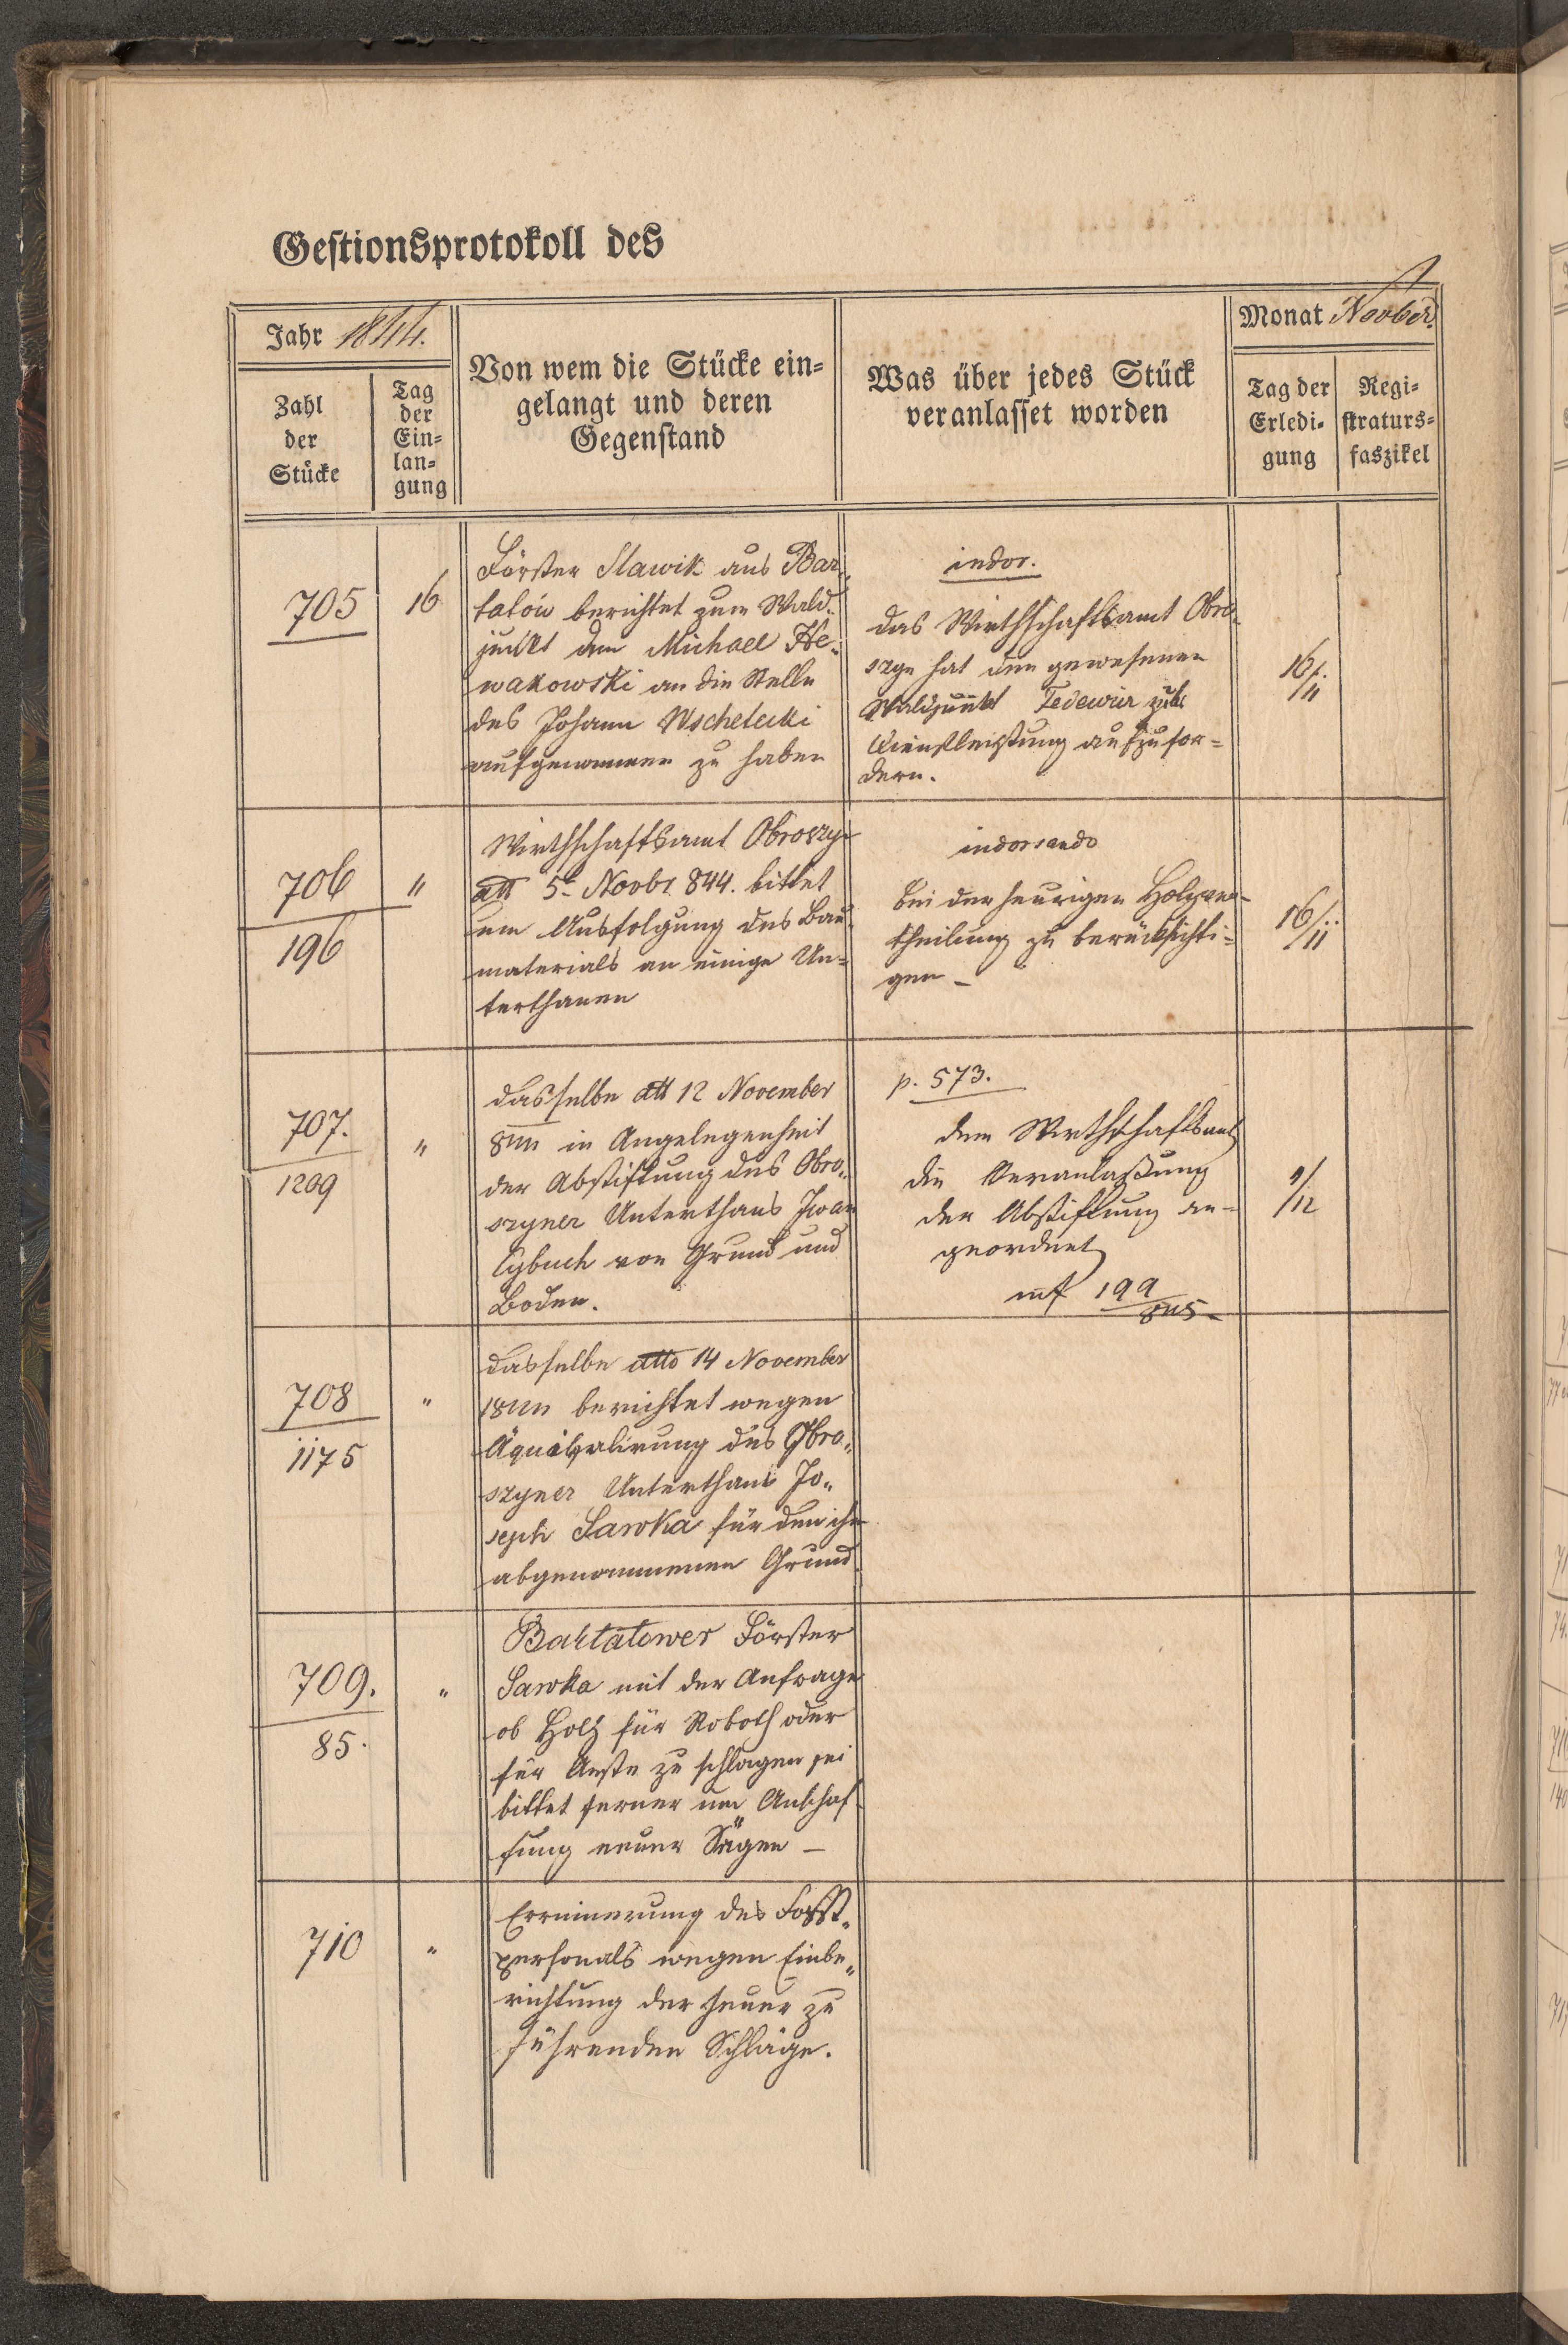 Gestionsprotokoll des
Jahr 1844.
Monat Novber
Zahl
der
Stücke
Tag
der
Ein-
lan-
gung
Von wem die Stücke ein-
gelangt und deren
Gegenstand
Was über jedes Stück
veranlasset worden
Tag der
Erledi-
gung
Regi-
straturs-
faszikel
705
16
Förster Slawik aus Bar-
tatów berichtet zum Wald-
den Michael He-
wakowski an die Stelle
des Johann
aufgenommen zu haben
indor.
das Wirthschaftsamt Obro-
szyn hat den gewesenen
Fedewiur zur
Dienstleistung aufzufor-
dern.
16/11
706
196
"
Wirthschaftsamt Obroszyn
dtt 5t Novbr 844. bittet
um Ausfolgung des Bau-
materials an einige Un-
terthanen
indorsando
bei der heurigen Holzver-
theilung zu berücksichti-
gen –
16/11
707.
1209
"
dasselbe dtt 12 November
844 in Angelegenheit
der Abstiftung des Obro-
szyner Unterthans Iwan
Cybuch von Grund und
Boden.
p. 573.
dem Wirthschaftsamt
die Veranlaßung
der Abstiftung an-
geordnet
199
845
9/12
708
1175
"
dasselbe dtto 14 November
1844 berichtet wegen
Äquivalirung des Obro-
szyner Unterthans Jo-
seph Sawka für den ihm
abgenommenen Grund
709.
85.
"
Bartatower Förster
Sawka mit der Anfrage
ob Holz für Roboth oder
für Aeste zu schlagen sei
bittet ferner um Anschaf-
fung neuer Sägen –
710
"
Erinnerung des Forst-
personals wegen Einbe-
richtung der heuer zu
führenden Schläge.